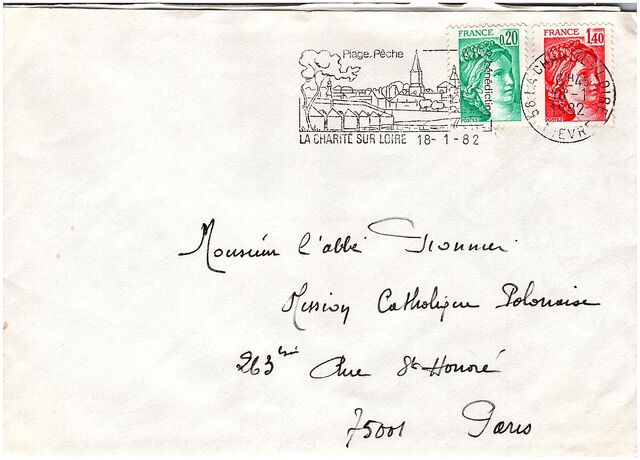 Plage. Pêche
bénédictin
LA CHARITÉ SUR LOIRE 18-1-82
FRANCE
0,20
POSTES
FRANCE
1,40
POSTES
58 LA CHARITÉ S. LOIRE
1982
NIEVRE
Monsieur l'abbé
Mission Catholique Polonaise
263 bis Rue St-Honoré
75001 Paris